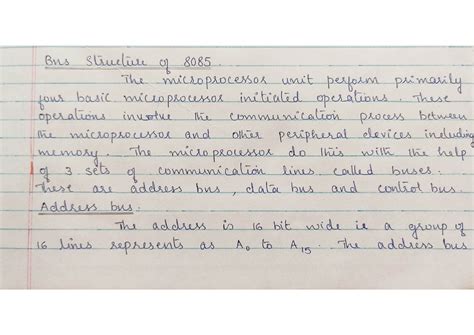 Bus Structure of 8085.
The microprocessor unit perform primarily
four basic microprocessor initiated operations. These
operations involve the communication process between
the microprocessor and other peripheral devices including
memory. The microprocessor do this with the help
of 3 sets of communication lines called buses.
These are address bus, data bus and control bus.
Address bus:
The address is 16 bit wide ie a group of
16 lines represents as A₀ to A₁₅. The address bus